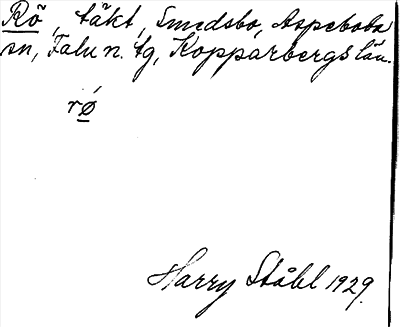 Rö, täkt, Smedsbo, Aspeboda
sn, Falu n. tg, Kopparbergs län.
rǿ
Harry Ståhl 1929.